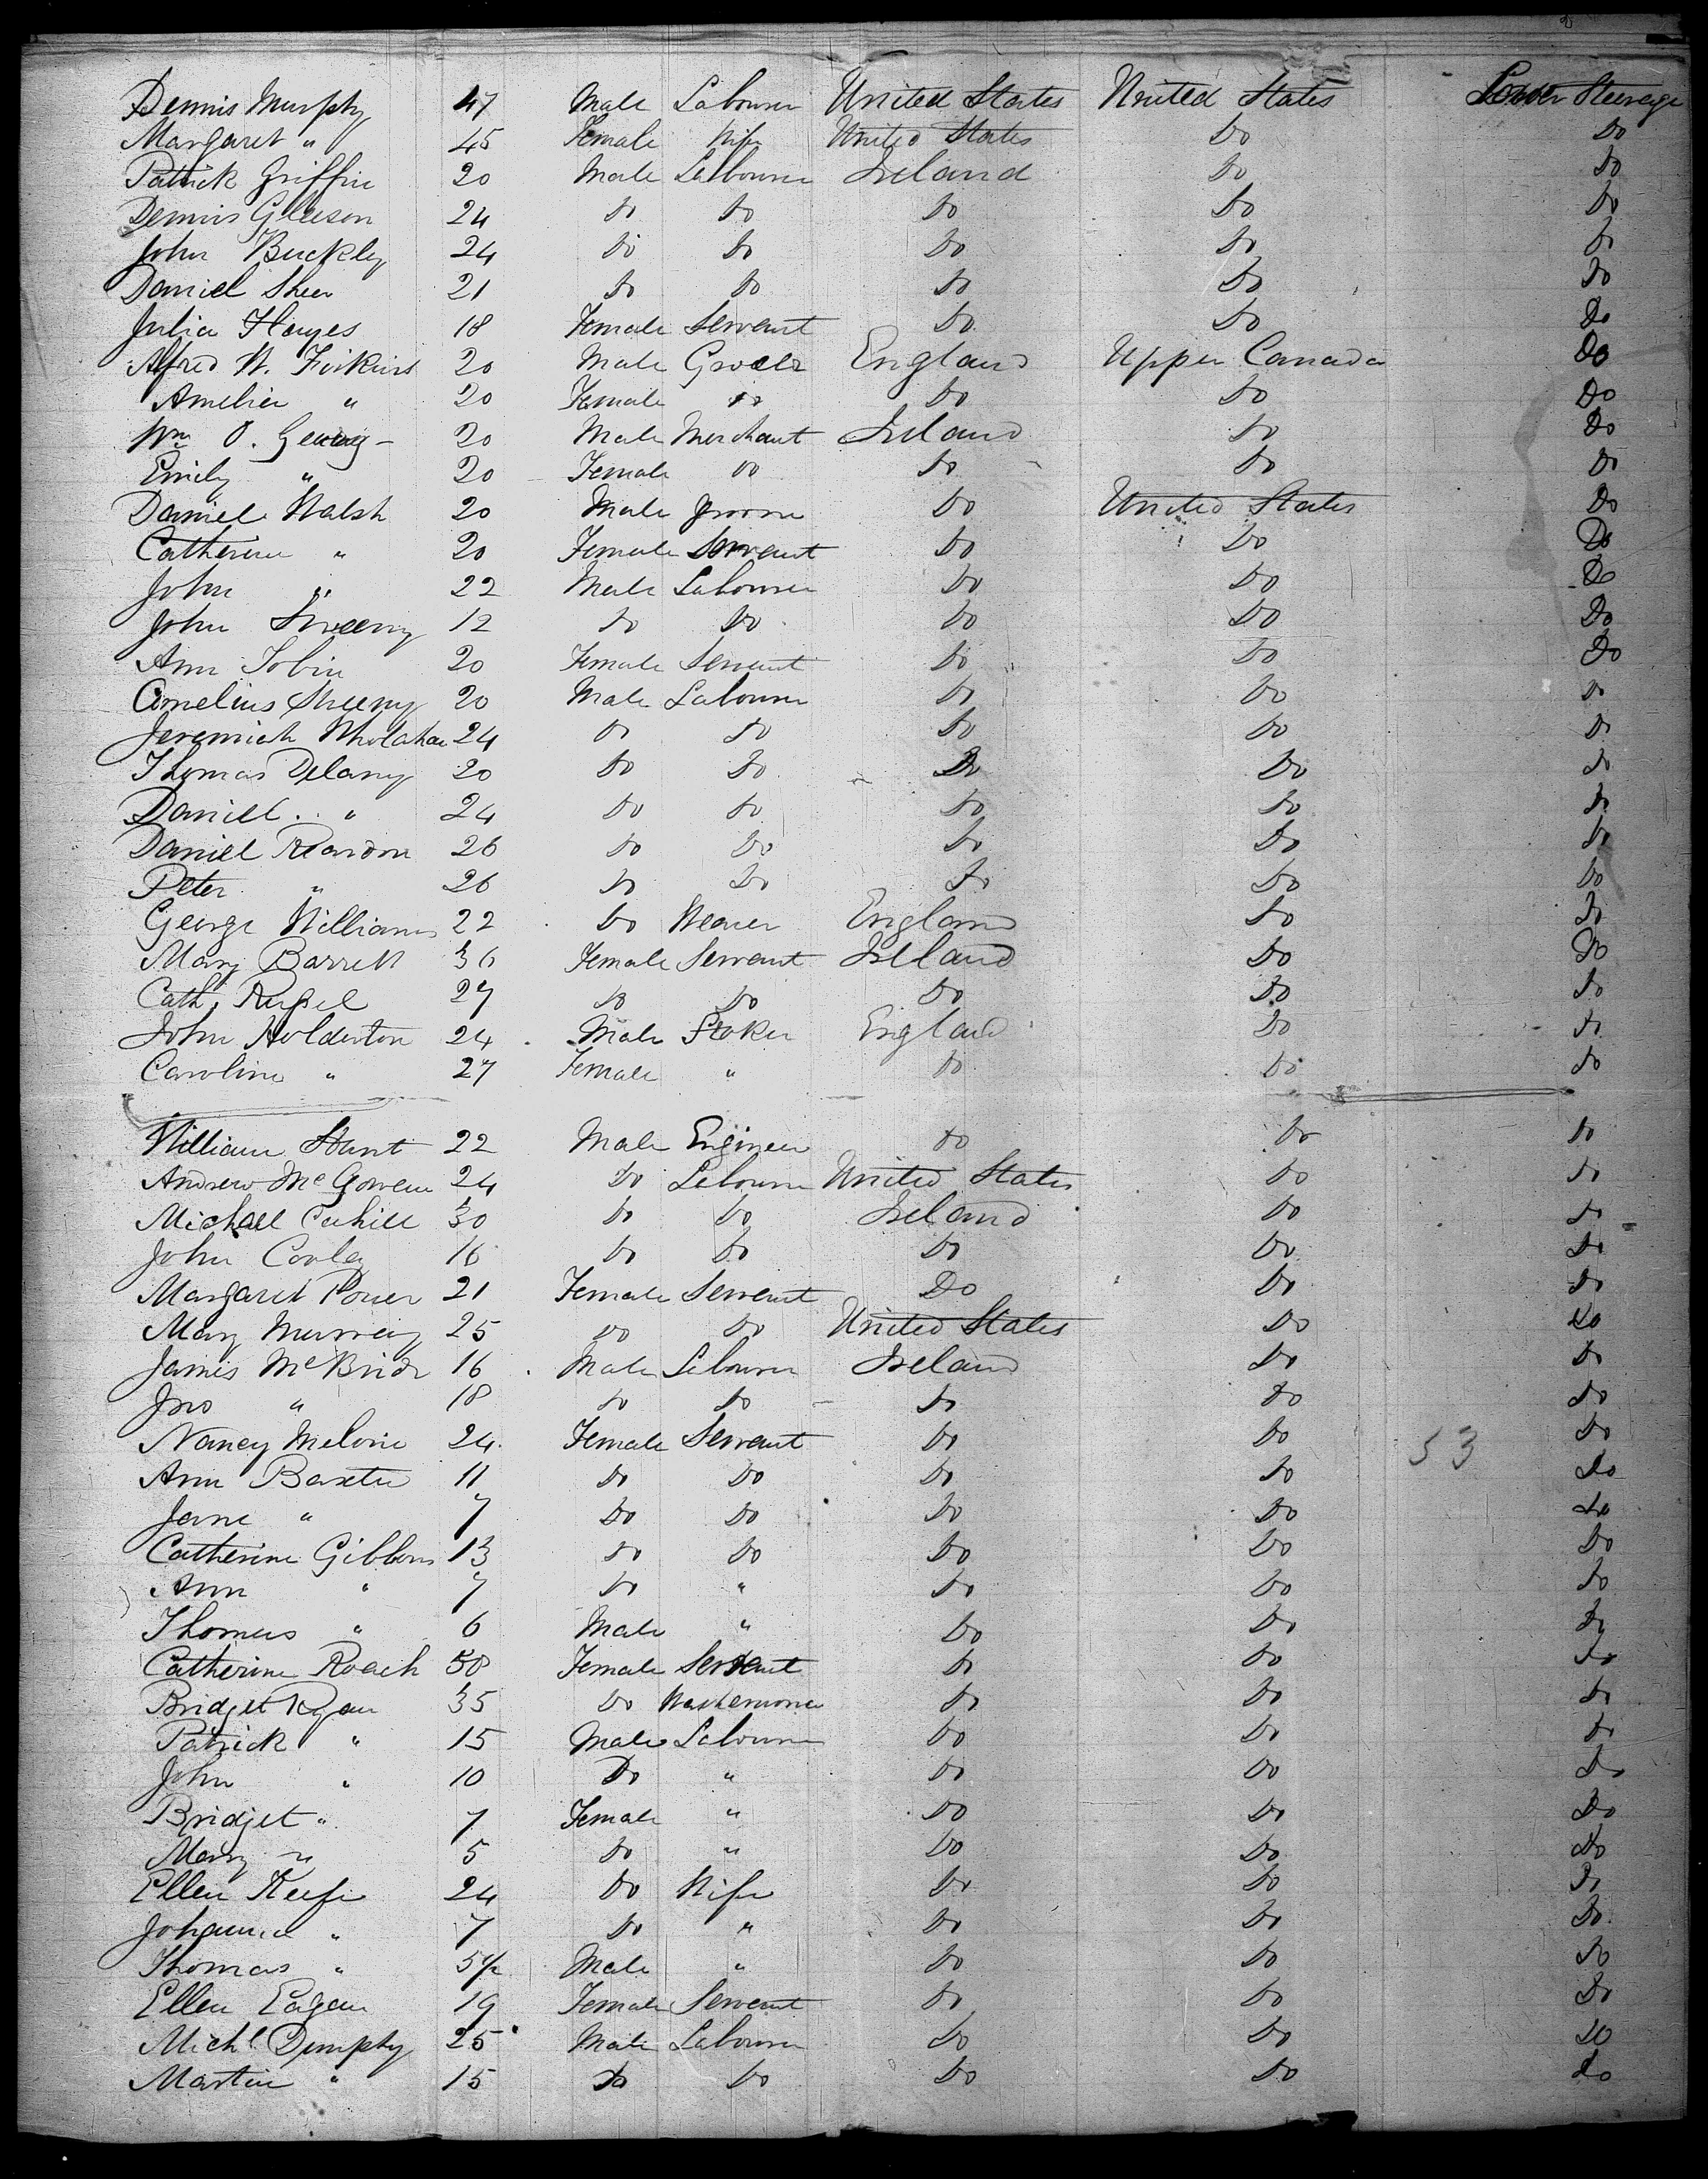 Dennis Murphy 47 Male Labourer United States United States Lower Steerage
Margaret " 45 Female Wife United States Do Do
Patrick Griffin 20 Male Labourer Ireland Do Do
Dennis Gleeson 24 Do Do Do Do Do
John Buckley 24 Do Do Do Do Do
Daniel Shea 21 Do Do Do Do Do
Julia Hayes 18 Female Servant Do Do Do
Alfred W. 20 Male Grocer England Upper Canada Do
Amelia " 20 Female Do Do Do Do
Wm O. 20 Male Merchant Ireland Do Do
Emily " 20 Female Do Do Do Do
Daniel Walsh 20 Male Groom Do United States Do
Catherine " 20 Female Servant Do Do Do
John " 22 Male Labourer Do Do Do
John Sweeny 12 Do Do Do Do Do
Ann Tobin 20 Female Servant Do Do Do
Cornelius Sheeny 20 Male Labourer Do Do Do
Jeremiah 24 Do Do Do Do Do
Thomas Delany 20 Do Do Do Do Do
Daniel " 24 Do Do Do Do Do
Daniel Reardon 26 Do Do Do Do Do
Peter " 26 Do Do Do Do Do
George Williams 22 Do Weaver England Do Do
Mary Barrett 36 Female Servant Ireland Do Do
Cath Russel 27 Do Do Do Do Do
John Holderton 24 Male Stoker England Do Do
Caroline " 27 Female " Do Do Do
William Hunt 22 Male Engineer Do Do Do
Andrew McGowen 24 Do Labourer United States Do Do
Michael Cahill 30 Do Do Ireland Do Do
John Conley 16 Do Do Do Do Do
Margaret Power 21 Female Servant Do Do Do
Mary Murray 25 Do Do United States Do Do
James McBride 16 Male Labourer Ireland Do Do
Jno " 18 Do Do Do Do Do
Nancy Melone 24 Female Servant Do Do Do
53
Ann Baxter 11 Do Do Do Do Do
Jane " 7 Do Do Do Do Do
Catherine Gibbons 13 Do Do Do Do Do
Ann " 7 Do " Do Do Do
Thomas " 6 Male " Do Do Do
Catherine Roach 50 Female Servant Do Do Do
Bridget Ryan 35 Do Washerwoman Do Do Do
Patrick " 15 Male Labourer Do Do Do
John " 10 Do " Do Do Do
Bridjet " 7 Female " Do Do Do
Mary " 5 Do " Do Do Do
Ellen Keefe 24 Do Wife Do Do Do
Johanna " 7 Do " Do Do Do
Thomas " 5½ Male " Do Do Do
Ellen Eagan 19 Female Servant Do Do Do
Michl Dumphy 25 Male Labourer Do Do Do
Martin " 15 Do Do Do Do Do